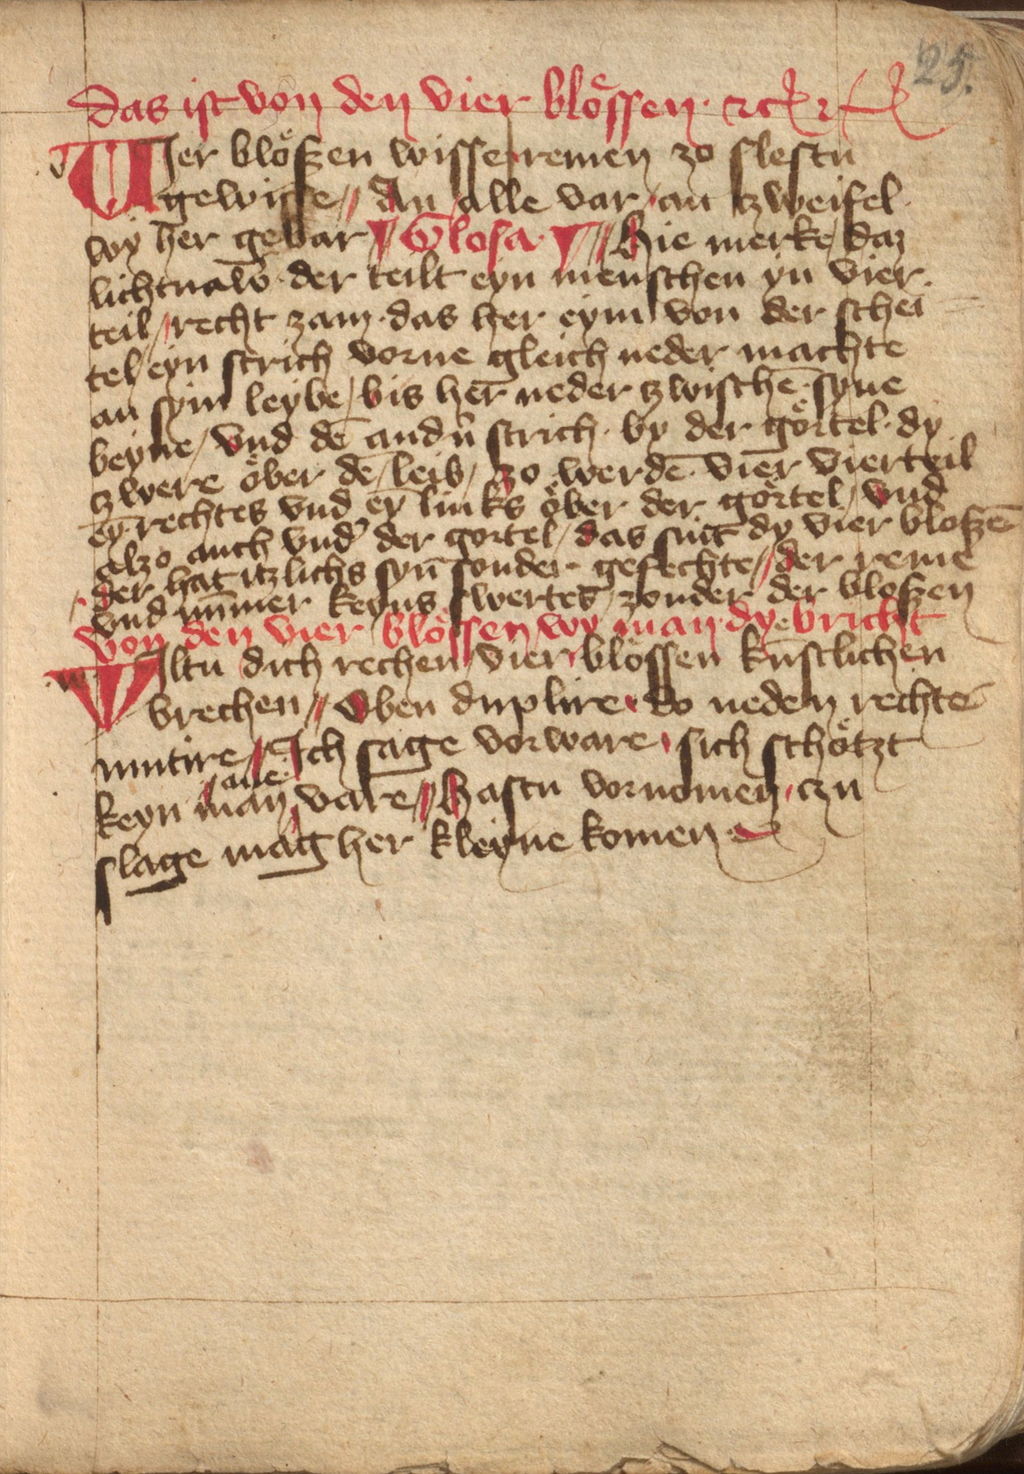 25.
Das ist von den vier blößen · ꝛc ꝛc
Vier blößen wisse · remen zo slestu
gewisse // An alle var · an tzweifel ·
wy her gebar // Glosa · // Hie merke daz
lichtnaw̄ · der teilt eyn menschen yn vier ·
teil / recht zam · das her eym von der schei
tel eyn strich vorne gleich neder machte
an sym leybe / bis her neder tzwischē syne
beyne / vnd dē andn̄ strich · by der gǒrtel · dy
tzwere ǒber dē leib / zo werdē vier vierteil
eȳ rechtes vnd eȳ links ǒber der gǒrtel / vnd
alzo auch vnd' der gortel / das sint dy vier bloßē
der hat itzlichs syn̄ sonder gefechte // der reme
vnd nim̄mer keyns swertes / zonder der bloßen
Von den vier blössen / wy man dy bricht
Wiltu dich rechen / vier blössen kunstlichen
brechen // Oben duplire · do neden rechte
mutire // Ich sage vorware · sich schǒtzt
keyn man ane vare // Hastu vornomen · czu
slage mag her kleyne komen